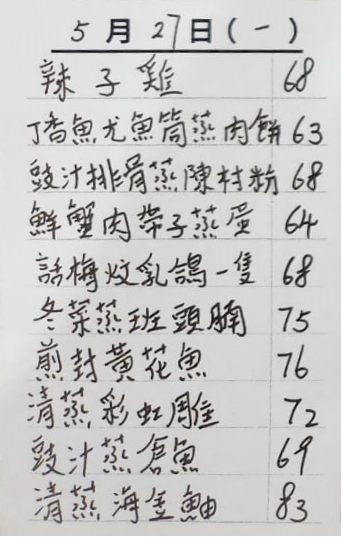 5月27日(一)
辣子雞 68
丁香魚尤魚筒蒸肉餅 63
豉汁排骨蒸陳村粉 68
鮮蟹肉帶子蒸蛋 64
話梅炆乳鴿一隻 68
冬菜蒸班頭腩 75
煎封黃花魚 76
清蒸彩虹雕 72
豉汁蒸倉魚 69
清蒸海金鯆 83